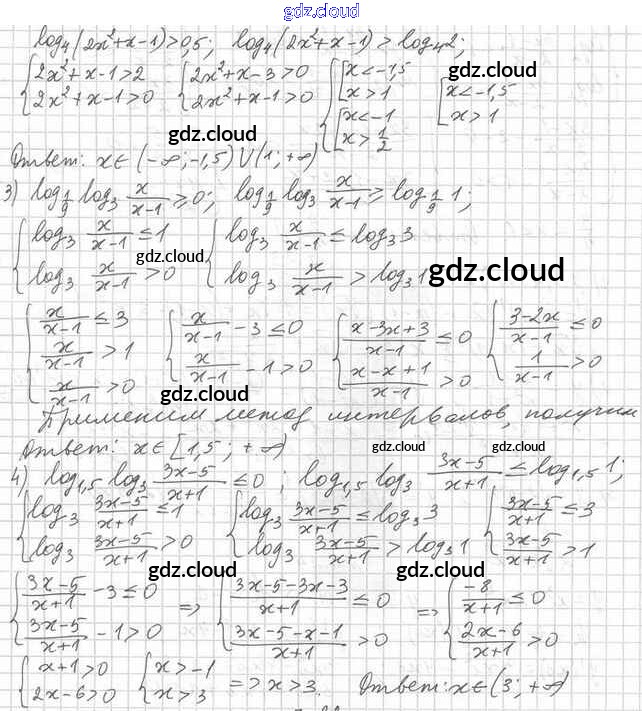 gdz.cloud
log₄(2x²+x-1)>0,5; log₄(2x²+x-1)>log₄2;
{2x²+x-1>2 {2x²+x-3>0 {[x<-1,5 [x<-1,5
{2x²+x-1>0 {2x²+x-1>0 {[x>1 [x>1
{[x<-1
{[x>1/2
gdz.cloud
gdz.cloud
Ответ: x∈(-∞;-1,5)∪(1;+∞)
3) log_{1/9} log₃ x/(x-1) ≥0; log_{1/9} log₃ x/(x-1) ≥ log_{1/9} 1;
{log₃ x/(x-1) ≤1 {log₃ x/(x-1) ≤ log₃3
{log₃ x/(x-1) >0 {log₃ x/(x-1) > log₃1
gdz.cloud
gdz.cloud
{x/(x-1) ≤3 {x/(x-1) -3≤0 {(x-3x+3)/(x-1) ≤0 {(3-2x)/(x-1) ≤0
{x/(x-1) >1 {x/(x-1) -1>0 {(x-x+1)/(x-1) >0 {1/(x-1) >0
{x/(x-1) >0
gdz.cloud
Применим метод интервалов, получим
Ответ: x∈[1,5;+∞)
gdz.cloud gdz.cloud
4) log₁,₅ log₃ (3x-5)/(x+1) ≤0; log₁,₅ log₃ (3x-5)/(x+1) ≤ log₁,₅1;
{log₃ (3x-5)/(x+1) ≤1 {log₃ (3x-5)/(x+1) ≤ log₃3 {(3x-5)/(x+1) ≤3
{log₃ (3x-5)/(x+1) >0 {log₃ (3x-5)/(x+1) > log₃1 {(3x-5)/(x+1) >1
gdz.cloud gdz.cloud
{(3x-5)/(x+1) -3≤0 ⇒ {(3x-5-3x-3)/(x+1) ≤0 ⇒ {-8/(x+1) ≤0
{(3x-5)/(x+1) -1>0 {(3x-5-x-1)/(x+1) >0 {(2x-6)/(x+1) >0
{x+1>0 {x>-1 => x>3. Ответ: x∈(3;+∞)
{2x-6>0 {x>3